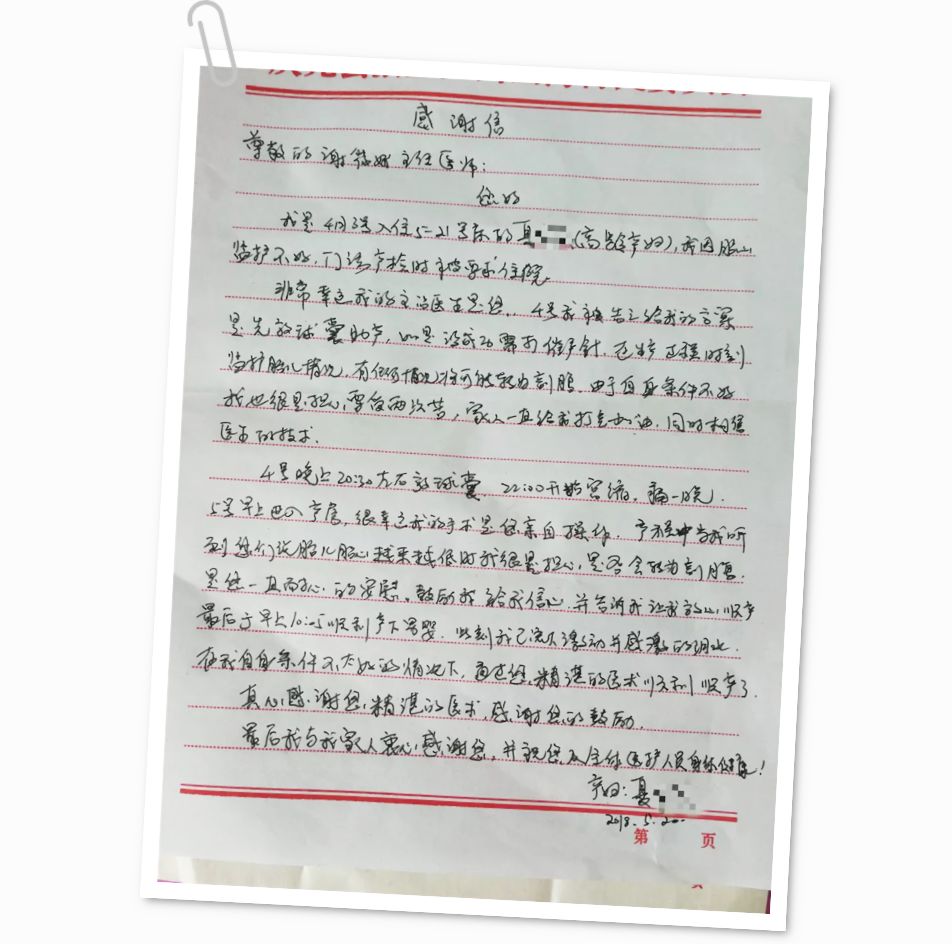 感谢信
尊敬的谢 主任医师:
您好
我是4月 入住5-21号床的夏 (高龄产妇),我因胎心
监护不好,门诊产检时被要求住院。
非常幸运我的主治医生是您,4号我被告之给我的方案
是先放球囊助产,如果没成功需打催产针,在生产过程时刻
监护胎儿情况,有任何情况将可能转为剖腹,由于自身条件不好
我也很是担心要受两次苦,家人一直给我打气加油,同时相信
医生的技术.
4号晚上20:30左右放球囊 22:00开始宫缩,痛一晚,
5号早上进入产房,很幸运我的手术是您亲自操作,产程中当我听
到您们说胎儿胎心越来越低时我很是担心,是否会转为剖腹.
是您一直耐心的安慰、鼓励我给我信心,并告诉我让我放心顺产
最后于早上10:05顺利产下男婴.此刻我已流下激动并感激的泪水.
在我自身条件不太好的情况下,通过您精湛的医术顺利顺产了.
真心感谢您精湛的医术,感谢您的鼓励,
最后我与我家人衷心感谢您,并祝您及全体医护人员身体健康!
产妇:夏
2018.5.20
第 页